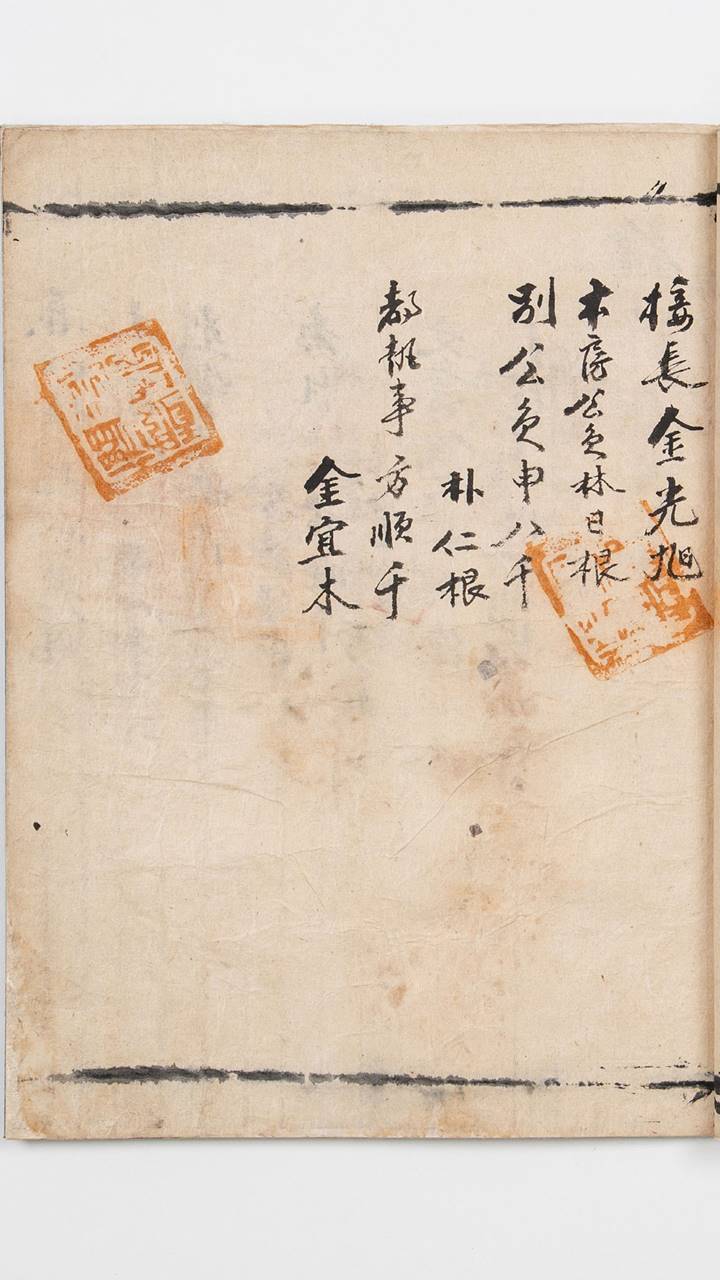 接長金光旭
本房公員林日根
別公員申八千
朴仁根
都執事方順千
金宜木